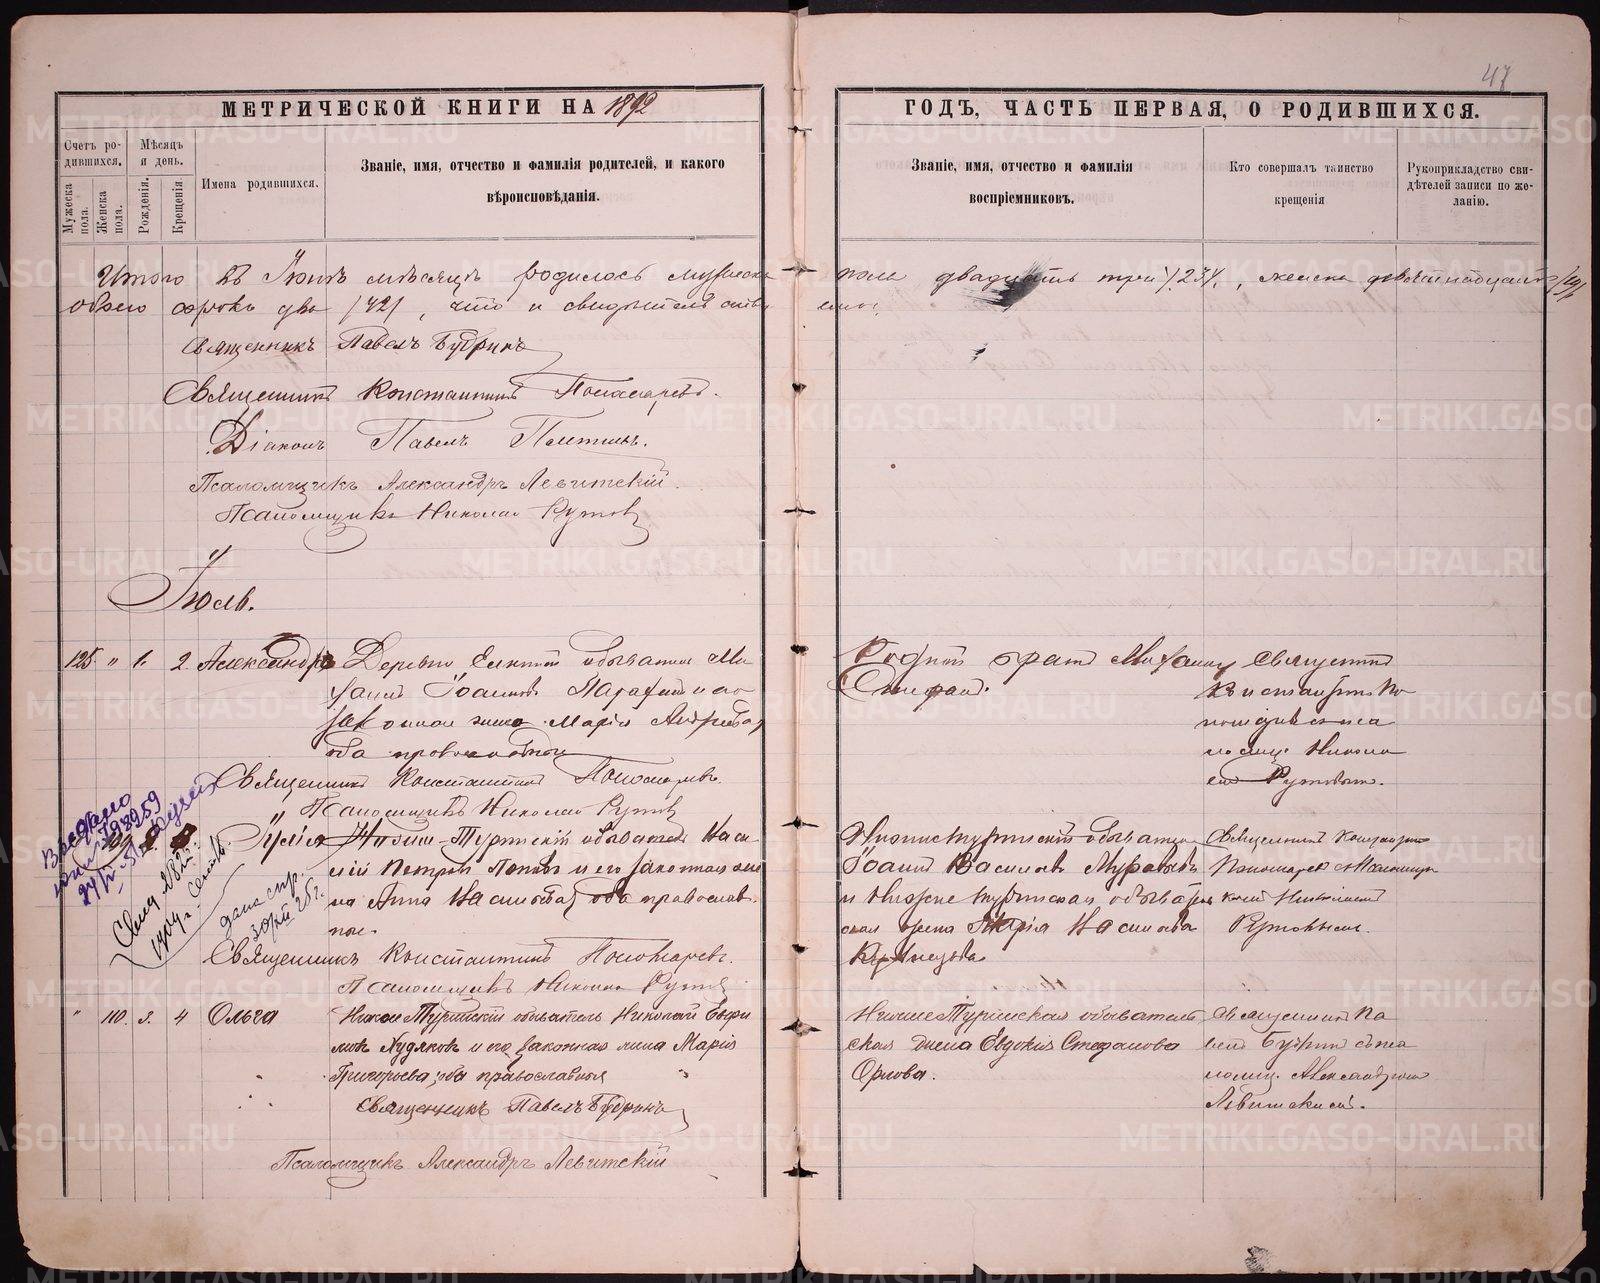 47
МЕТРИЧЕСКОЙ КНИГИ НА 1892
ГОДЪ, ЧАСТЬ ПЕРВАЯ, О РОДИВШИХСЯ.
Счетъ родившихся.
Мужеска пола.
Женска пола.
Мѣсяцъ и день.
Рожденія.
Крещенія.
Имена родившихся.
Званіе, имя, отчество и фамилія родителей, и какого
вѣроисповѣданія.
Званіе, имя, отчество и фамилія
воспріемниковъ.
Кто совершалъ таинство
крещенія
Рукоприкладство сви-
дѣтелей записи по же-
ланію.
Итого въ Іюнѣ мѣсяцѣ родилось мужеска пола двадцать три /23/, женска девятнадцать /19/
обоего сорокъ два /42/, что и свидѣтельству
емъ:
Священникъ Павелъ Будринъ
Священникъ Константинъ Пономаревъ.
Діаконъ Павелъ
Псаломщикъ Александръ Левитскій.
Псаломщикъ Николай Рутовъ
Іюль.
125. " 1. 2. Александръ
Деревни обыватель Ми
Іоанновъ и его
законная жена Марія Андреева,
оба православные
Священникъ Константинъ Пономаревъ.
Псаломщикъ Николай Рутовъ
братъ
Стефанъ.
Священникъ
Константинъ По
номаревъ съ пса
ломщ. Никола
емъ Рутовымъ.
Выдано
Свид. 182
1904 г.
дана спр.
25 г.
Іулія
Нижне-Туринскій обыватель Васи
лій Петровъ Поповъ и его законная же
на Анна Васильева, оба православ-
ные.
Священникъ Константинъ Пономаревъ.
Псаломщикъ Николай Рутовъ
Нижнетуринскій обыватель
Іоаннъ Васильевъ Муравьевъ
и Нижнетуринская обыватель
ская жена Марія Васильева
Кузнецова
Священникъ Константинъ
Пономаревъ съ псаломщи
комъ Николаемъ
Рутовымъ.
" 110. 3. 4 Ольга
Нижне Туринскій обыватель Николай Ефи
мовъ Худяковъ и его законная жена Марія
Григорьева, оба православныя
Священникъ Павелъ Будринъ
Псаломщикъ Александръ Левитскій
Нижне Туринская обыватель
ская Евдокія Степанова
Орлова.
Священникъ Па
велъ Будринъ съ пса
ломщ. Александромъ
Левитскимъ.
METRIKI.GASO-URAL.RU